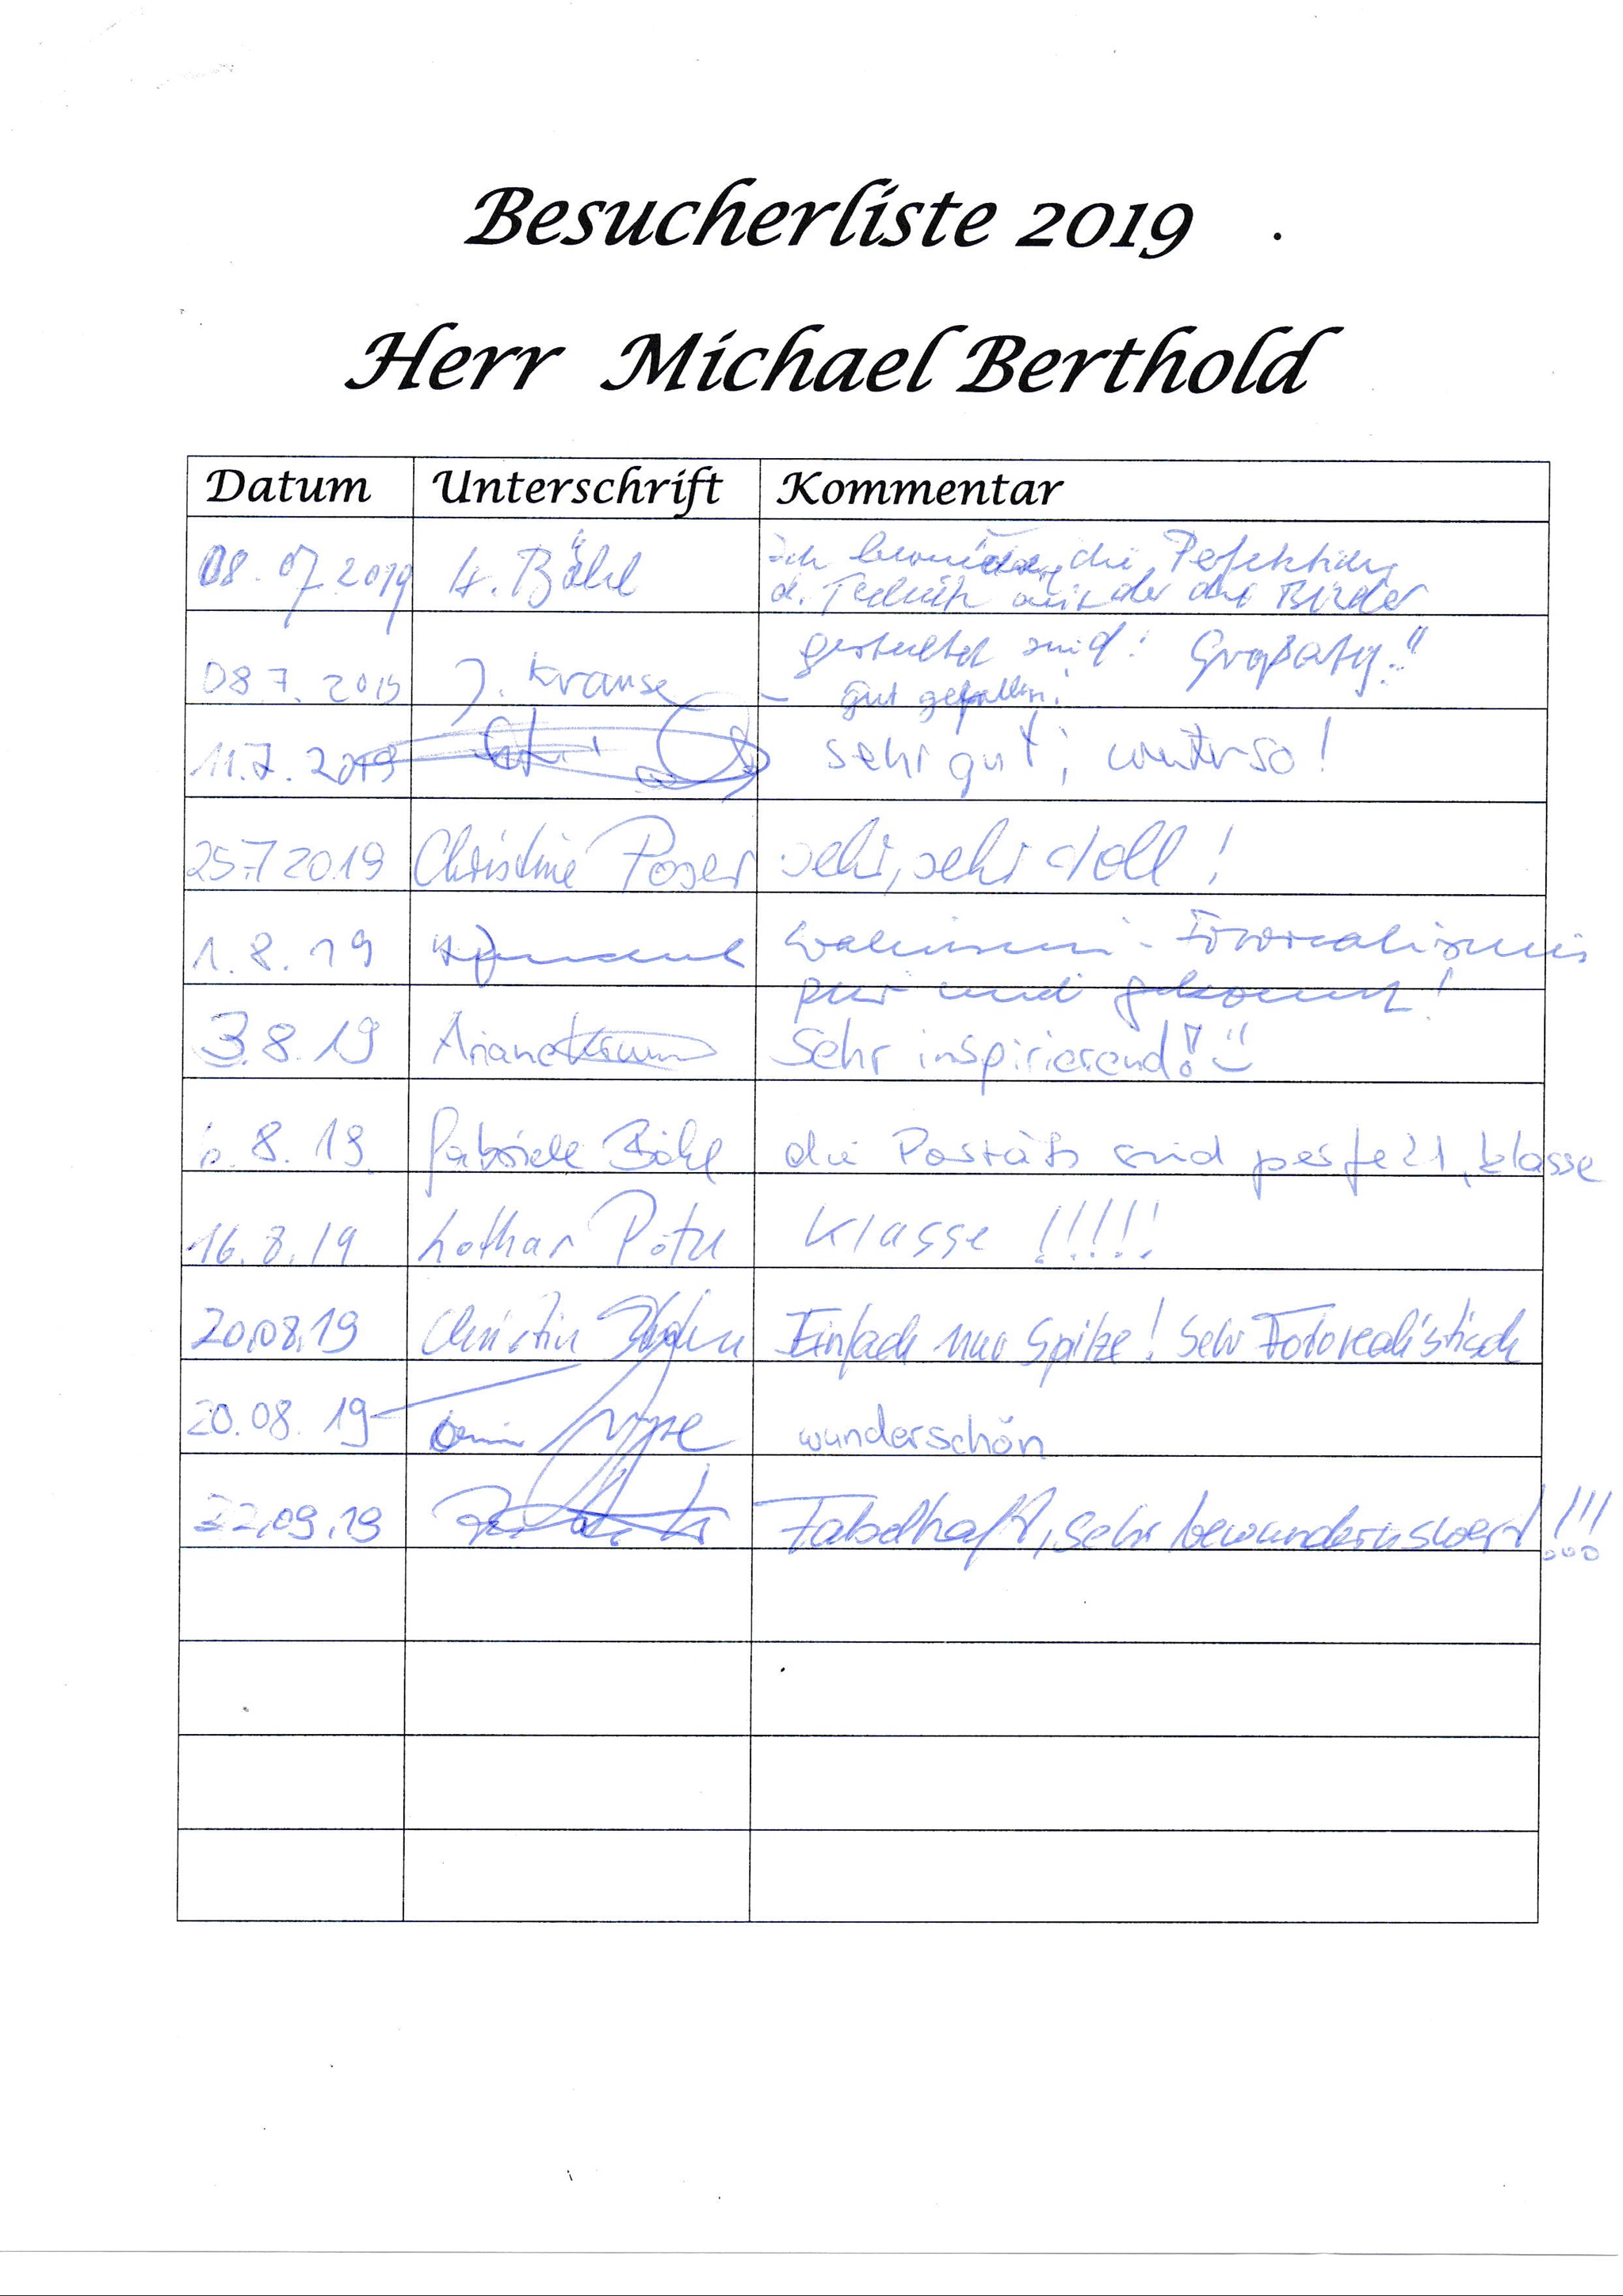 Besucherliste 2019
Herr Michael Berthold
Datum Unterschrift Kommentar
08.07.2019 H. Bökl Ich bewundere die Pefektion
d. Technik mit der die Bilder
gestaltet sind! Großartig!!
08 7. 2019 J. Krause - gut gefallen!
11.7. 2019 sehr gut, weiter so!
25.7 2019 Christine Poser sehr, sehr toll!
1. 8. 19 Wahnsinn - Fotorealismus
pur und gekonnt!
3.8.19 Ariane Sehr inspirierend!!
6. 8. 19 Gabriele Bökl die Porträts sind perfekt, klasse
16.8.19 Lothar Klasse !!!!!
20.08.19 Christin Einfach nur Spitze! Sehr Fotorealistisch
20.08.19 wunderschön
22.09.19 Fabelhaft, sehr bewundernswert!!!